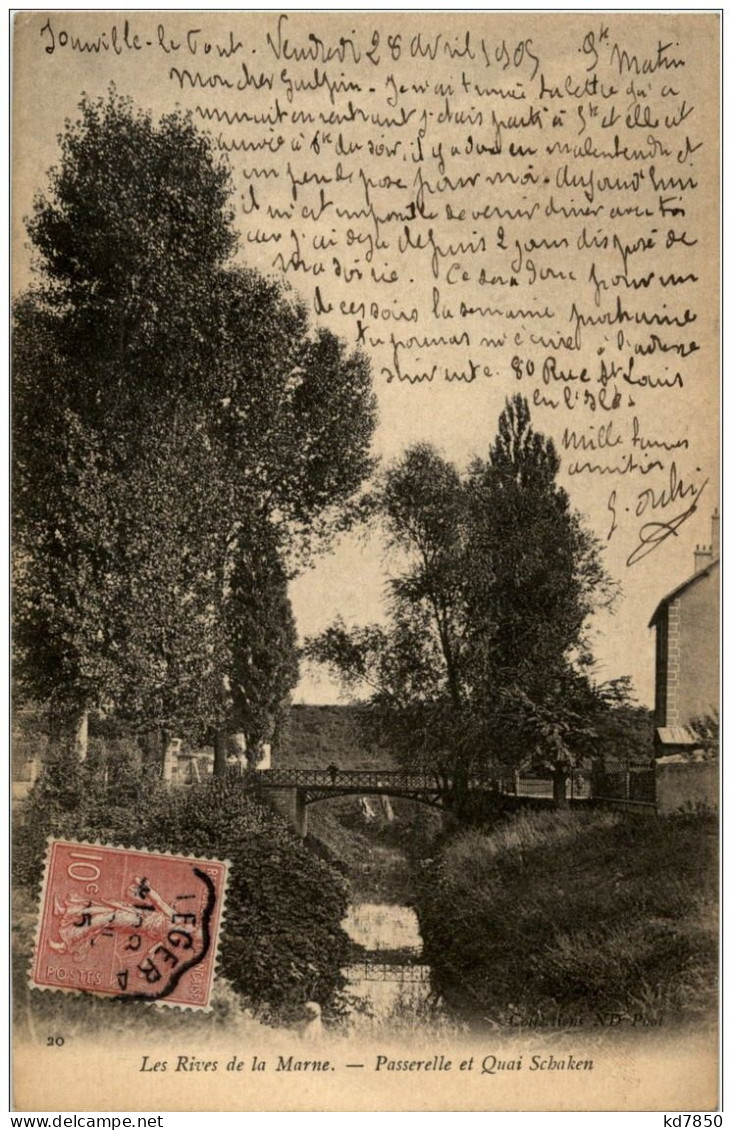 Joinville-le Pont. Vendredi 28 Avril 1905 9h Matin
Mon cher Je n'ai trouvé ta lettre qu'a
en rentrant j'etais parti à 5h et elle est
arrivée à 6h du soir, il y a donc eu malentendu et
un peu de pose pour moi. Aujourd'hui
il m'est impossible de venir diner avec toi
car j'ai deja depuis 2 jours disposé de
ma soirée. Ce sera donc pour un
de ces soirs la semaine prochaine
tu pourras m'écrire à l'adresse
suivante. 80 Rue St Louis
en l'Isle.
Mille bonnes
amitiés
10c
POSTES
LEGER A
20
Collections ND Phot
Les Rives de la Marne. — Passerelle et Quai Schaken
kd7850